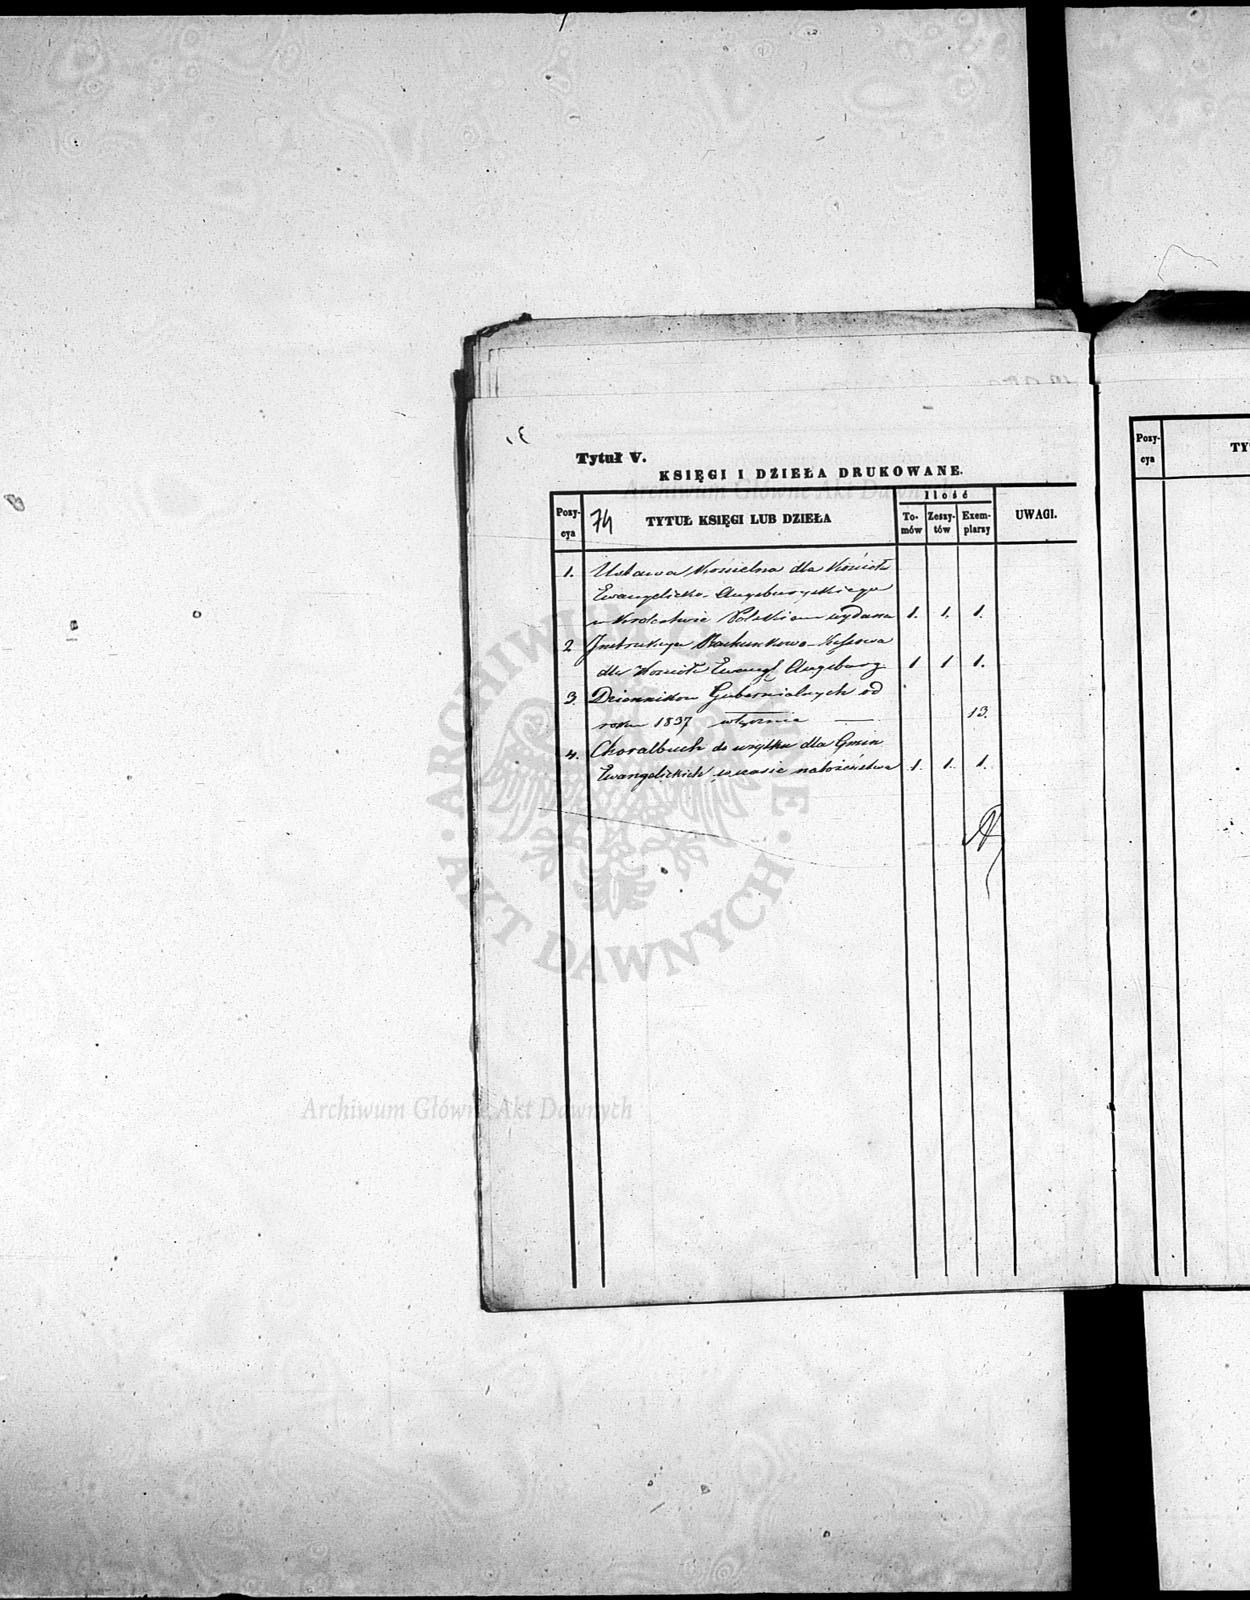 Tytuł V.
KSIĘGI I DZIEŁA DRUKOWANE.
Pozycya 74 TYTUŁ KSIĘGI LUB DZIEŁA Ilość Tomów Zeszytów Exemplarzy UWAGI.
1. Ustawa Kościelna dla Kościoła
Ewangelicko-Augsburgskiego
w Królestwie Polskiem wydana 1. 1. 1.
2 Instrukcya Rachunkowo-Kassowa
dla Kościoła Ewangl Augsburg 1 1 1.
3. Dzienników Gubernialnych od
roku 1837 włącznie — 13.
4. Choralbuch do użytku dla Gmin
Ewangelickich w czasie nabożeństwa 1. 1. 1.
Pozycya
TY
ARCHIWUM GŁÓWNE AKT DAWNYCH
Archiwum Główne Akt Dawnych
Archiwum Główne Akt Dawnych